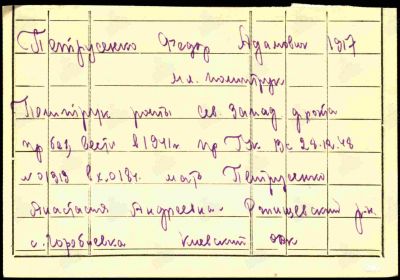 Петрусенко Федор Адамович 1917
мл. политрук
Политрук роты сев. Запад. фронта
пр. без вести в 1941г пр ГУК ВС 28.12.48
№ 01313 вх. 018г. мать Петрусенко
Анастасия Андреевна Ракищевский р-н
с. Горобиевка Киевский обл